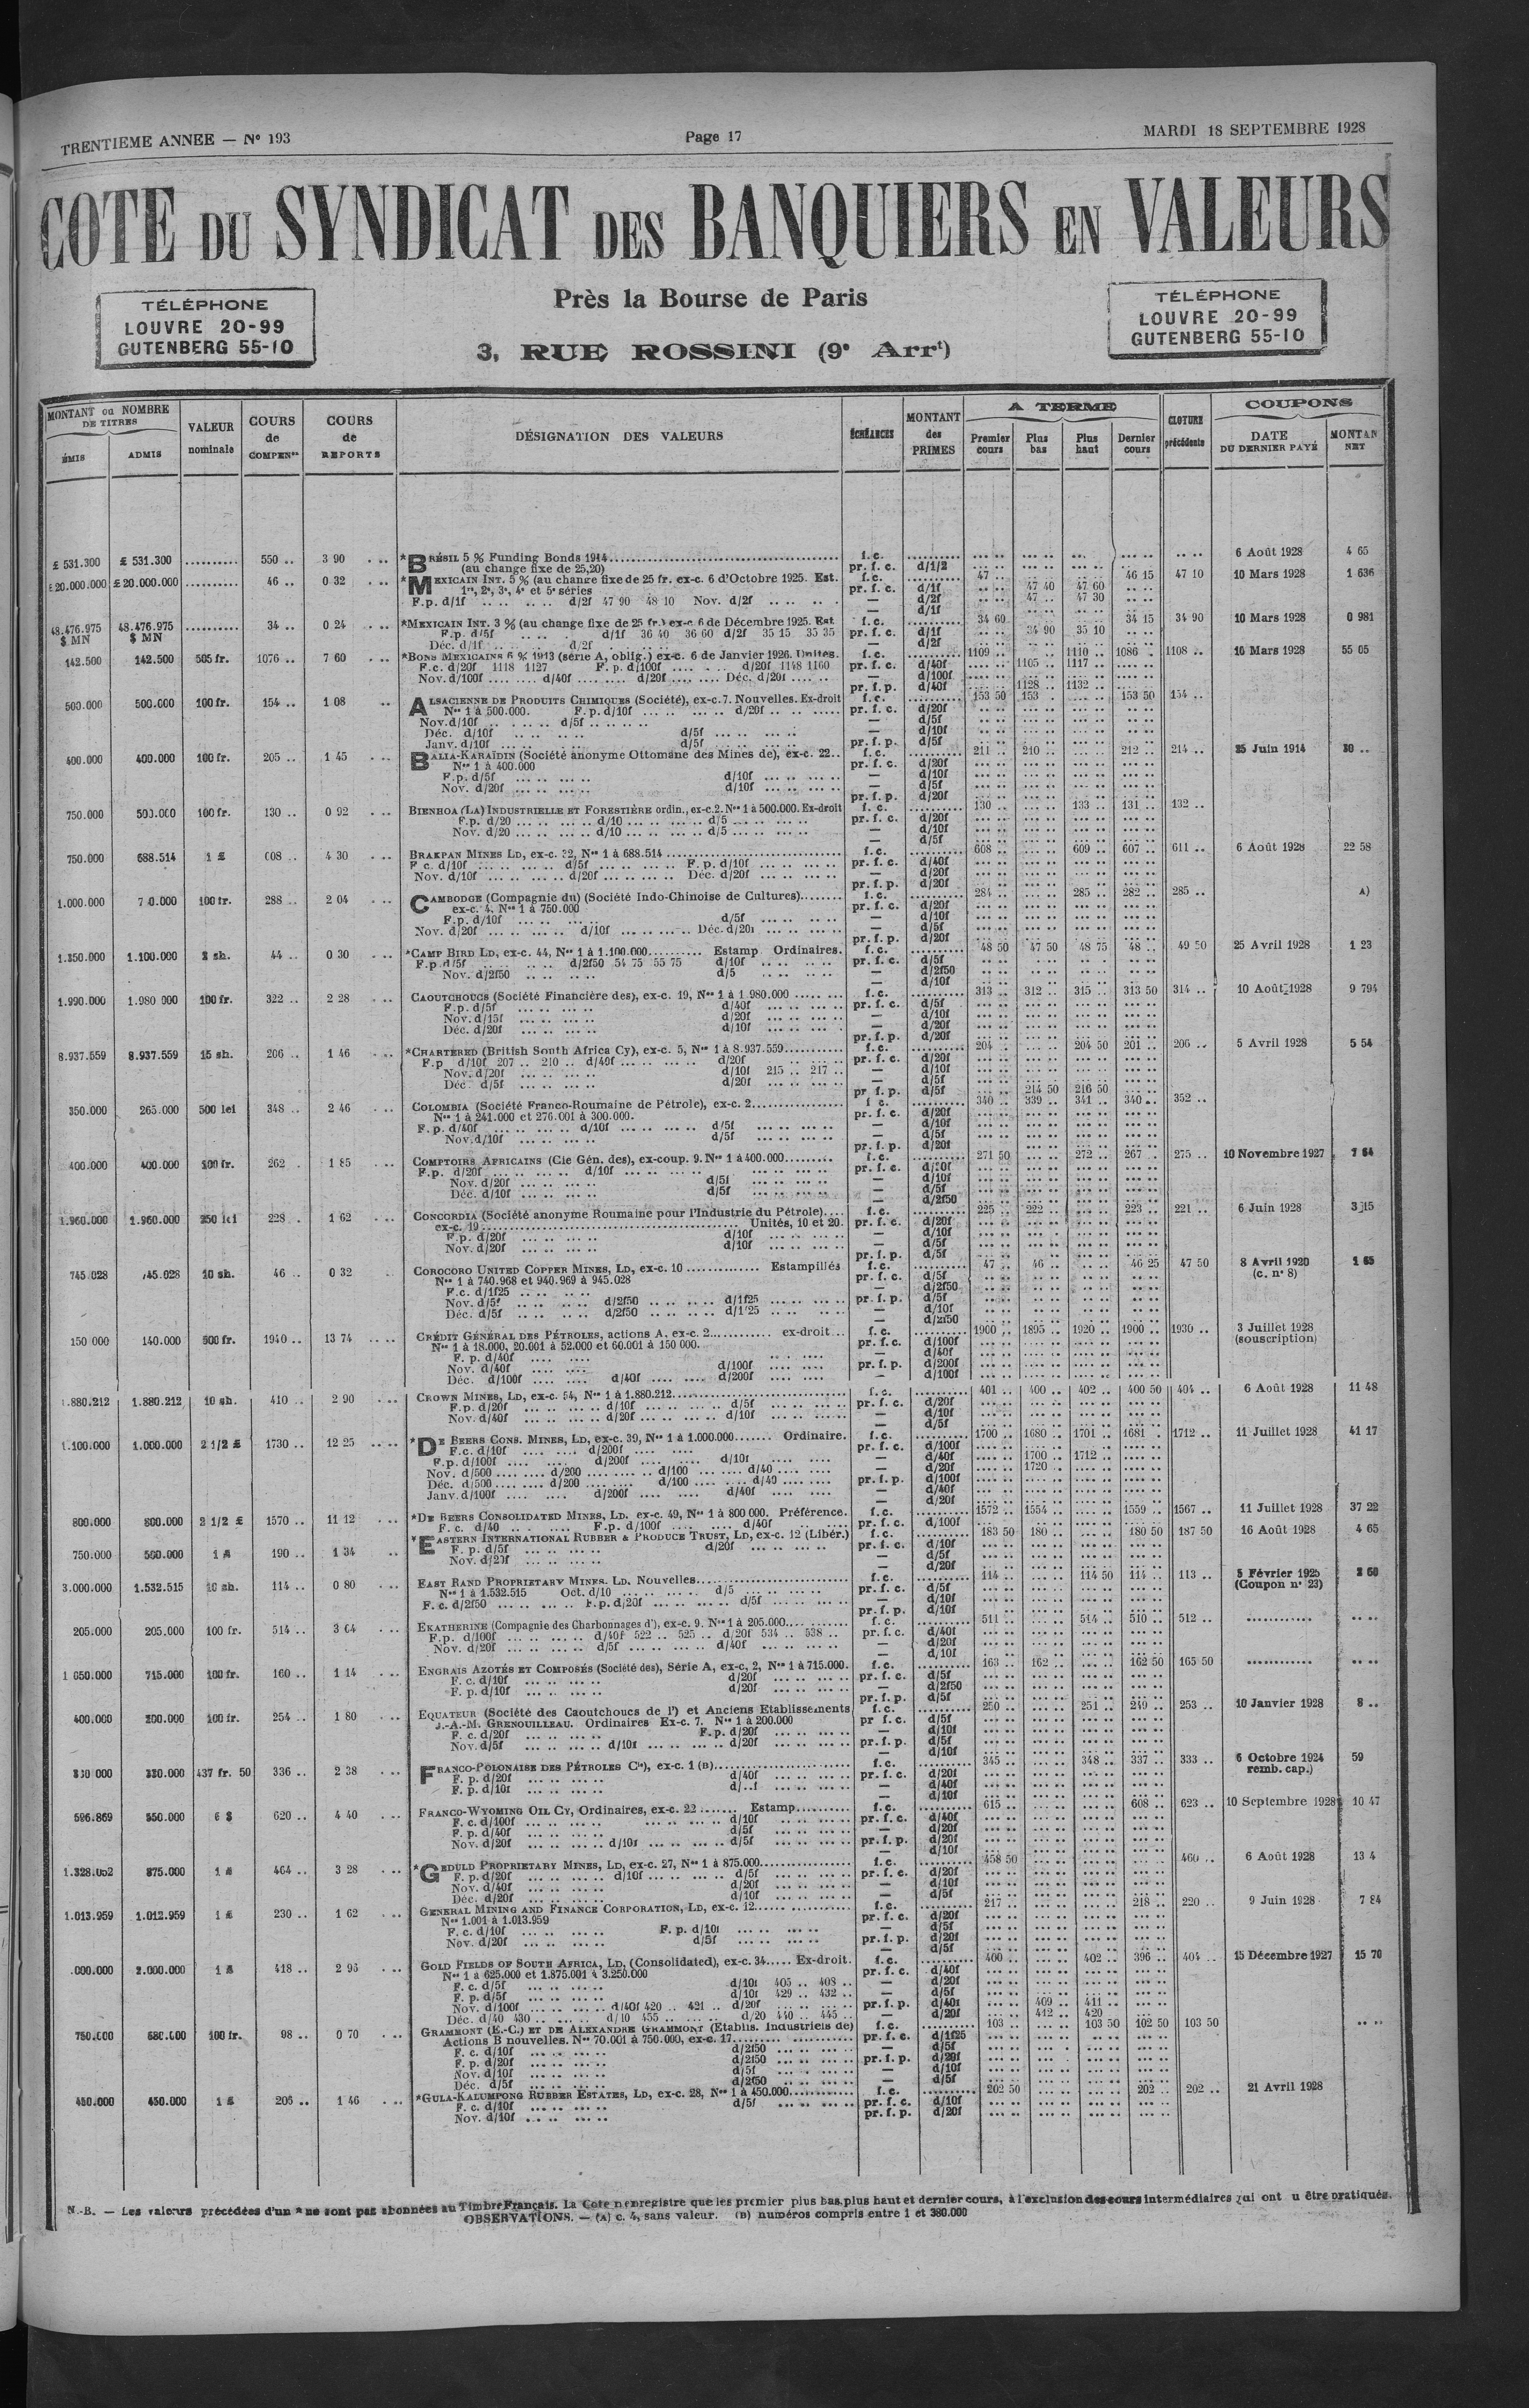 TRENTIEME ANNEE — N° 193 Page 17 MARDI 18 SEPTEMBRE 1928
COTE DU SYNDICAT DES BANQUIERS EN VALEURS
TÉLÉPHONE
LOUVRE 20-99
GUTENBERG 55-10
Près la Bourse de Paris
3, RUE ROSSINI (9e Arrt)
TÉLÉPHONE
LOUVRE 20-99
GUTENBERG 55-10
MONTANT ou NOMBRE DE TITRES
ÉMIS ADMIS
VALEUR nominale
COURS de COMPENon
COURS de REPORTS
DÉSIGNATION DES VALEURS
ÉCHÉANCES
MONTANT des PRIMES
A TERME
Premier cours Plus bas Plus haut Dernier cours
CLOTURE précédente
COUPONS
DATE DU DERNIER PAYÉ MONTAN NET
£ 531.300 £ 531.300 .......... 550 .. 3 90 *BRÉSIL 5 % Funding Bonds 1914 f. c. 6 Août 1928 4 65
(au change fixe de 25,20) pr. f. c. d/1/2
£ 20.000.000 £ 20.000.000 .......... 46 .. 0 32 *MEXICAIN INT. 5 % (au change fixe de 25 fr. ex-c. 6 d'Octobre 1925. Est. f.c. 47 .. 46 15 47 10 10 Mars 1928 1 636
1re, 2e, 3e, 4e et 5e séries pr. f. c. d/1f 47 40 47 60
F.p. d/1f .. .. .. .. d/2f 47 90 48 10 Nov. d/2f .. .. .. . — d/2f 47 .. 47 30
— d/1f
48.476.975 $ MN 48.476.975 $ MN .......... 34 .. 0 24 *MEXICAIN INT. 3 % (au change fixe de 25 fr.) ex-c. 6 de Décembre 1925. Est f. c. 34 60 34 15 34 90 10 Mars 1928 0 981
F.p. d/5f .. .. . d/1f 36 40 36 60 d/2f 35 15 35 35 pr. f. c. d/1f 34 90 35 10
Déc. d/1f .. .. .. .. d/2f — d/2f
142.500 142.500 505 fr. 1076 .. 7 60 *BONS MEXICAINS 6 % 1913 (série A, oblig.) ex-c. 6 de Janvier 1926. Unités. f. c. 1109 .. 1110 .. 1086 .. 1108 .. 10 Mars 1928 55 05
F.c. d/20f 1118 1127 F. p. d/100f .... .. .. d/20f 1148 1160 pr. f. c. d/40f 1105 .. 1117 ..
Nov. d/100f .... .... d/40f .... .... d/20f .... .... Déc. d/20f .... .. — d/100f
pr. f. p. d/40f 1128 .. 1132 ..
500.000 500.000 100 fr. 154 .. 1 08 ALSACIENNE DE PRODUITS CHIMIQUES (Société), ex-c. 7. Nouvelles. Ex-droit f. c. 153 50 153 .. 153 50 154 ..
Nos 1 à 500.000. F.p. d/10f ... .. ... .. d/20f .. .. ..... pr. f. c. d/20f
Nov. d/10f .. .. .. .. d/5f .. .. .. .. — d/5f
Déc. d/10f .. .. .. .. d/5f ... .. ... .. — d/10f
Janv. d/10f ... .. ... .. d/5f pr. f. p. d/5f
400.000 400.000 100 fr. 205 .. 1 45 BALIA-KARAÏDIN (Société anonyme Ottomane des Mines de), ex-c. 22.. f. c. 211 .. 210 .. 212 .. 214 .. 25 Juin 1914 30 ..
Nos 1 à 400.000 pr. f. c. d/20f
F.p. d/5f ... .. ... .. d/10f ... .. ... .. — d/10f
Nov. d/20f ... .. ... .. d/10f ... .. ... .. — d/5f
pr. f. p. d/20f
750.000 500.000 100 fr. 130 .. 0 92 BIENHOA (LA) INDUSTRIELLE ET FORESTIÈRE ordin., ex-c. 2. Nos 1 à 500.000. Ex-droit f. c. 130 .. 133 .. 131 .. 132 ..
F.p. d/20 ... .. ... .. d/10 ... .. ... .. d/5 ... .. ... .. pr. f. c. d/20f
Nov. d/20 ... .. ... .. d/10 ... .. ... .. d/5 ... .. ... .. — d/10f
— d/5f
750.000 688.514 1 £ 608 .. 4 30 BRAKPAN MINES LD, ex-c. 32, Nos 1 à 688.514 f. c. 608 .. 609 .. 607 .. 611 .. 6 Août 1928 22 58
F c. d/10f ... .. ... .. d/5f ... .. ... .. F. p. d/10f ... .. ... .. pr. f. c. d/40f
Nov. d/10f ... .. ... .. d/20f ... .. ... .. Déc. d/20f ... .. ... .. — d/20f
pr. f. p. d/20f
1.000.000 100 fr. 288 .. 2 04 CAMBODGE (Compagnie du) (Société Indo-Chinoise de Cultures) f. c. 284 .. 285 .. 282 .. 285 .. A)
ex-c. 4. Nos 1 à 750.000 pr. f. c. d/20f
F.p. d/10f ... .. ... .. d/5f ... .. ... .. — d/10f
Nov. d/20f ... .. ... .. d/10f ... .. ... .. Déc. d/20f ... .. ... .. — d/5f
pr. f. p. d/20f
1.350.000 1.100.000 2 sh. 44 .. 0 30 *CAMP BIRD LD, ex-c. 44, Nos 1 à 1.100.000 Estamp Ordinaires. f. c. 48 50 47 50 48 75 48 .. 49 50 25 Avril 1928 1 23
F.p. d/5f .. .. .. .. d/2f50 54 75 55 75 d/10f .. .. .. .. pr. f. c. d/5f
Nov. d/2f50 .. .. .. .. d/5 .. .. .. .. — d/2f50
— d/10f
1.990.000 1.980 000 100 fr. 322 .. 2 28 CAOUTCHOUCS (Société Financière des), ex-c. 19, Nos 1 à 1.980.000 f. c. 313 .. 312 .. 315 .. 313 50 314 .. 10 Août 1928 9 794
F.p. d/5f ... .. ... .. d/40f ... .. ... .. pr. f. c. d/5f
Nov. d/15f ... .. ... .. d/20f ... .. ... .. — d/10f
Déc. d/20f ... .. ... .. d/10f ... .. ... .. — d/20f
pr. f. p. d/20f
8.937.559 8.937.559 15 sh. 206 .. 1 46 *CHARTERED (British South Africa Cy), ex-c. 5, Nos 1 à 8.937.559 f. c. 204 .. 204 50 201 .. 206 .. 5 Avril 1928 5 54
F.p d/10f 207 .. 210 .. d/40f ... .. ... .. d/20f pr. f. c. d/20f
Nov. d/20f ... .. ... .. d/10f 215 .. 217 .. — d/10f
Déc. d/5f ... .. ... .. d/20f ... .. ... .. — d/5f
pr f. p. d/5f 214 50 216 50
350.000 265.000 500 lei 348 .. 2 46 COLOMBIA (Société Franco-Roumaine de Pétrole), ex-c. 2 f c. 340 .. 339 .. 341 .. 340 .. 352 ..
Nos 1 à 241.000 et 276.001 à 300.000. pr. f. c. d/20f
F. p. d/40f ... .. ... .. d/10f ... .. ... .. d/5f ... .. ... .. — d/10f
Nov. d/10f ... .. ... .. d/5f ... .. ... .. — d/5f
pr. f. p. d/20f
400.000 400.000 100 fr. 262 . 1 85 COMPTOIRS AFRICAINS (Cie Gén. des), ex-coup. 9. Nos 1 à 400.000 f. c. 271 50 272 .. 267 .. 275 .. 10 Novembre 1927 7 64
F.p. d/20f ... .. ... .. d/10f ... .. ... .. pr. f. c. d/20f
Nov. d/20f ... .. ... .. d/5f ... .. ... .. — d/10f
Déc. d/10f ... .. ... .. d/5f ... .. ... .. — d/5f
— d/2f50
1.960.000 1.960.000 250 lei 228 . 1 62 CONCORDIA (Société anonyme Roumaine pour l'Industrie du Pétrole) f. c. 225 .. 222 .. 223 .. 221 .. 6 Juin 1928 3 15
ex-c. 19 Unités, 10 et 20. pr. f. c. d/20f
F.p. d/20f ... .. ... .. d/10f ... .. ... .. — d/10f
Nov. d/20f ... .. ... .. d/10f ... .. ... .. — d/5f
pr. f. p. d/5f
745.028 745.028 10 sh. 46 .. 0 32 COROCORO UNITED COPPER MINES, LD, ex-c. 10 Estampillés f. c. 47 .. 46 .. 46 25 47 50 8 Avril 1920 1 65
Nos 1 à 740.968 et 940.969 à 945.028 pr. f. c. d/5f (c. n° 8)
F.c. d/1f25 .. .. .. .. — d/2f50
Nov. d/5f .. .. .. .. d/2f50 .. .. .. .. d/1f25 ... .. ... .. pr. f. p. d/5f
Déc. d/5f .. .. .. .. d/2f50 .. .. .. .. d/1f25 .. .. .. .. — d/10f
— d/2f50
150 000 140.000 500 fr. 1940 .. 13 74 CRÉDIT GÉNÉRAL DES PÉTROLES, actions A, ex-c. 2 ex-droit f. c. 1900 .. 1895 .. 1920 .. 1900 .. 1930 .. 3 Juillet 1928
Nos 1 à 18.000, 20.001 à 52.000 et 60.001 à 150 000. pr. f. c. d/100f (souscription)
F. p. d/40f .... .... — d/40f
Nov. d/40f .... .... d/100f .... .... pr. f. p. d/200f
Déc. d/100f .... .... d/40f .... .... d/200f .... .... — d/100f
1.880.212 1.880.212 10 sh. 410 .. 2 90 CROWN MINES, LD, ex-c. 54, Nos 1 à 1.880.212 f. c. 401 .. 400 .. 402 .. 400 50 404 .. 6 Août 1928 11 48
F.p. d/20f ... .. ... .. d/10f ... .. ... .. d/5f ... .. ... .. pr. f. c. d/20f
Nov. d/40f ... .. ... .. d/20f ... .. ... .. d/10f ... .. ... .. — d/10f
— d/5f
1.100.000 1.000.000 2 1/2 £ 1730 .. 12 25 *DE BEERS CONS. MINES, LD, ex-c. 39, Nos 1 à 1.000.000 Ordinaire. f. c. 1700 .. 1680 .. 1701 .. 1681 . 1712 .. 11 Juillet 1928 41 17
F.c. d/10f .... .... d/200f .... .... pr. f. c. d/100f
F.p. d/100f .... .... d/200f .... .... d/10f .... .... — d/40f 1700 .. 1712 ..
Nov. d/500 .... .... d/200 .... .... d/100 .... .... d/40 .... .... — d/20f 1720 ..
Déc. d/500 .... .... d/200 .... .... d/100 .... .... d/40 .... .... pr. f. p. d/100f
Janv. d/100f .... .... d/200f .... .... d/40f .... .... — d/40f
— d/20f
800.000 800.000 2 1/2 £ 1570 .. 11 12 *DE BEERS CONSOLIDATED MINES, LD. ex-c. 49, Nos 1 à 800 000. Préférence. f. c. 1572 .. 1554 .. 1559 .. 1567 .. 11 Juillet 1928 37 22
F. c. d/40 .. . .... F.p. d/100f .... .... d/40f .. .. .... pr. f. c. d/100f
750.000 500.000 1 £ 190 .. 1 34 *EASTERN INTERNATIONAL RUBBER & PRODUCE TRUST, LD, ex-c. 12 (Libér.) f. c. 183 50 180 .. 180 50 187 50 16 Août 1928 4 65
F. p. d/5f ... .. ... .. d/20f ... .. ... .. pr. f. c. d/10f
Nov. d/20f ... .. ... .. — d/5f
— d/20f
3.000.000 1.532.515 10 sh. 114 .. 0 80 EAST RAND PROPRIETARY MINES. LD. Nouvelles f. c. 114 .. 114 50 114 .. 113 .. 5 Février 1925
Nos 1 à 1.532.515 Oct. d/10 ... .. ... .. d/5 ... .. ... .. pr. f. c. d/5f (Coupon n° 23)
F. c. d/2f50 ... .. ... .. F.p. d/20f ... .. ... .. d/5f ... .. ... .. — d/10f
pr. f. p. d/10f
205.000 205.000 100 fr. 514 .. 3 64 EKATHERINE (Compagnie des Charbonnages d'), ex-c. 9. Nos 1 à 205.000 f. c. 511 .. 514 .. 510 .. 512 .. ............
F.p. d/100f ... .. ... .. d/40f 522 .. 525 .. d/20f 534 .. 538 .. pr. f. c. d/40f
Nov. d/20f ... .. ... .. d/5f ... .. ... .. d/40f ... .. ... .. — d/20f
— d/10f
1 050.000 715.000 100 fr. 160 .. 1 14 ENGRAIS AZOTÉS ET COMPOSÉS (Société des), Série A, ex-c. 2, Nos 1 à 715.000. f. c. 163 .. 162 .. 162 50 165 50 ............
F. c. d/10f ... .. ... .. d/20f ... .. ... .. pr. f. c. d/5f
F. p. d/10f ... .. ... .. d/20f ... .. ... .. — d/2f50
pr. f. p. d/5f
400.000 200.000 100 fr. 254 .. 1 80 EQUATEUR (Société des Caoutchoucs de l') et Anciens Etablissements f. c. 250 .. 251 .. 249 .. 253 .. 10 Janvier 1928 8 ..
J.-A.-M. GRENOUILLEAU. Ordinaires Ex-c. 7. Nos 1 à 200.000 pr f. c. d/5f
F. c. d/20f ... .. ... .. F.p. d/20f ... .. ... .. — d/10f
Nov. d/5f ... .. ... .. d/10f ... .. ... .. d/20f ... .. ... .. pr. f. p. d/5f
— d/10f
330.000 437 fr. 50 336 .. 2 38 FRANCO-POLONAISE DES PÉTROLES Cie), ex-c. 1 (B) f. c. 345 .. 348 .. 337 .. 333 .. 6 Octobre 1924 59
F. p. d/20f ... .. ... .. d/40f ... .. ... .. pr. f. c. d/20f remb. cap.)
F. p. d/10f ... .. ... .. — d/40f
— d/10f
596.869 550.000 6 $ 620 .. 4 40 FRANCO-WYOMING OIL CY, Ordinaires, ex-c. 22 Estamp f. c. 615 .. 608 .. 623 .. 10 Septembre 1928 10 47
F. c. d/100f ... .. ... .. d/10f ... .. ... .. pr. f. c. d/40f
F. p. d/40f ... .. ... .. d/5f ... .. ... .. — d/20f
Nov. d/20f ... .. ... .. d/10f ... .. ... .. d/5f ... .. ... .. pr. f. p. d/20f
— d/10f
1.328.052 875.000 1 £ 464 .. 3 28 *GEDULD PROPRIETARY MINES, LD, ex-c. 27, Nos 1 à 875.000 f. c. 458 50 460 .. 6 Août 1928 13 4
F. p. d/20f ... .. ... .. d/10f ... .. ... .. d/5f ... .. ... .. pr. f. c. d/20f
Nov. d/40f ... .. ... .. d/20f ... .. ... .. — d/10f
Déc. d/20f ... .. ... .. d/10f ... .. ... .. — d/5f
1.013.959 1.012.959 1 £ 230 .. 1 62 GENERAL MINING AND FINANCE CORPORATION, LD, ex-c. 12 f. c. 217 .. 218 .. 220 .. 9 Juin 1928 7 84
Nos 1.001 à 1.013.959 pr. f. c. d/20f
F. c. d/10f ... .. ... .. F. p. d/10f ... .. ... .. — d/5f
Nov. d/20f ... .. ... .. d/5f ... .. ... .. pr. f. p. d/20f
— d/5f
.000.000 2.000.000 1 £ 418 .. 2 95 GOLD FIELDS OF SOUTH AFRICA, LD, (Consolidated), ex-c. 34 Ex-droit. f. c. 400 .. 402 .. 396 .. 404 .. 15 Décembre 1927 15 70
Nos 1 à 625.000 et 1.875.001 à 3.250.000 pr. f. c. d/40f
F. c. d/5f ... .. ... .. d/10f 405 .. 408 .. — d/20f
F. p. d/5f ... .. ... .. d/10f 429 .. 432 .. — d/5f
Nov. d/100f ... .. ... .. d/40f 420 .. 421 .. d/20f ... .. ... .. pr. f. p. d/40f 409 .. 411 ..
Déc. d/40 430 .. ... .. d/10 455 .. ... .. d/20 440 .. 445 .. — d/20f 412 .. 420 ..
750.000 680.000 100 fr. 98 .. 0 70 GRAMMONT (E.-C.) ET DE ALEXANDRE GRAMMONT (Etablis. Industriels de) f. c. 103 .. 103 50 102 50 103 50
Actions B nouvelles. Nos 70.001 à 750.000, ex-c. 17 pr. f. c. d/1f25
F. c. d/10f ... .. ... .. d/2f50 ... .. ... .. — d/5f
F. p. d/20f ... .. ... .. d/2f50 ... .. ... .. pr. f. p. d/20f
Nov. d/10f ... .. ... .. d/5f ... .. ... .. — d/10f
Déc. d/5f ... .. ... .. d/2f50 ... .. ... .. — d/5f
450.000 450.000 1 £ 206 .. 1 46 *GULA-KALUMPONG RUBBER ESTATES, LD, ex-c. 28, Nos 1 à 450.000 f. c. 202 50 202 .. 202 .. 21 Avril 1928
F. c. d/10f ... .. ... .. d/5f ... .. ... .. pr. f. c. d/10f
Nov. d/10f ... .. ... .. pr. f. p. d/20f
N.-B. — Les valeurs précédées d'un * ne sont pas abonnées au Timbre Français. La Cote n'enregistre que les premier plus bas, plus haut et dernier cours, à l'exclusion des cours intermédiaires qui ont u être pratiqués.
OBSERVATIONS. — (A) c. 4, sans valeur. (B) numéros compris entre 1 et 380.000